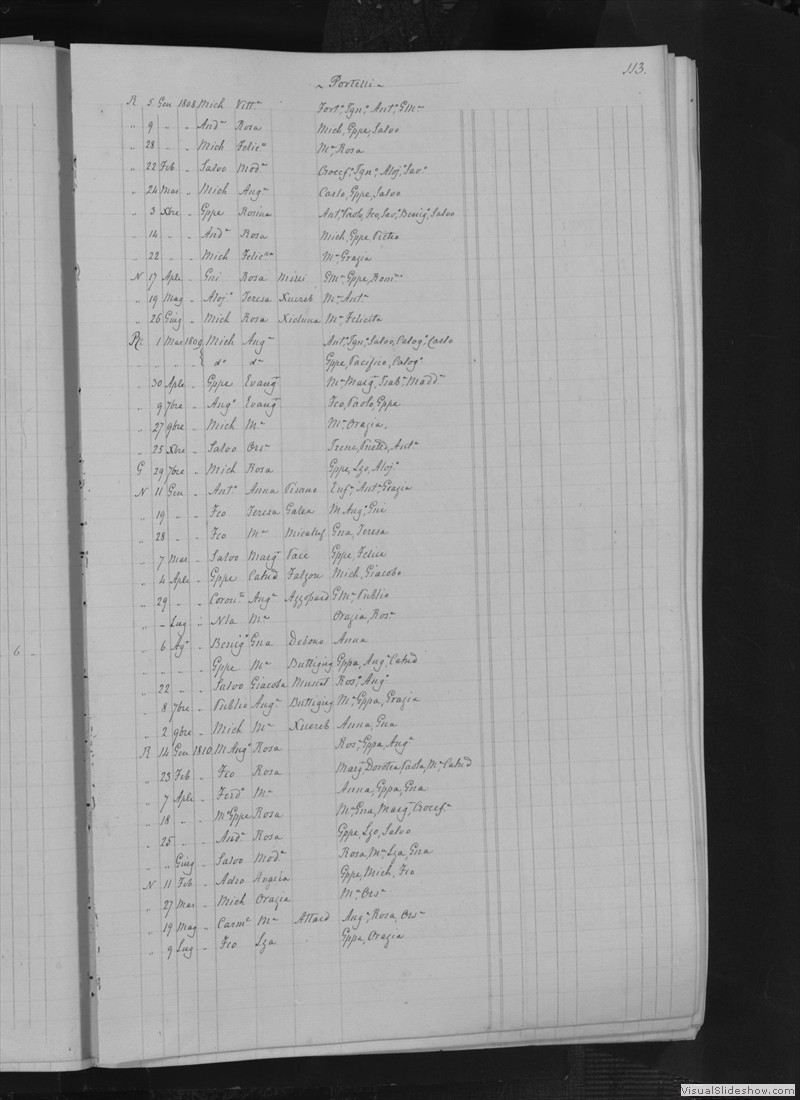 113.
~ Portelli ~
R 5 Gen 1808 Mich Vitt.a Fort.o, Ign.o, Ant.o, G.M.a
" 9 " " And.a Rosa Mich, Gppe, Salvo
" 28 " " Mich Felic.a M.a, Rosa
" 22 Feb " Salvo Mod.a Crocef.o, Ign.o, Aloj.o, Sav.o
" 24 Mar " Mich Aug.a Carlo, Gppe, Salvo
" 3 Xbre " Gppe Rosina Ant.o, Paolo, Fco, Sav.o, Benig.o, Salvo
" 14 " " And.a Rosa Mich, Gppe, Pietro
" 22 " " Mich Felic.a M.a Grazia
N 17 Aple " Gni Rosa G.M.a, Gppe, Rom.o
" 19 Mag " Aloj.o Teresa Xuereb M.a, Ant.a
" 26 Giug " Mich Rosa Xicluna M.a, Felicita
R 1 Mar 1809 Mich Aug.a Ant.o, Ign.o, Salvo, Calog.o, Carlo
" " " " do do Gppe, Pacifico, Calog.o
" 30 Aple " Gppe Evang.a M.a Marg.a, Isab.a, Madd.a
" 9 7bre " Aug.o Evang.a Fco, Paolo, Gppe
" 27 9bre " Mich M.a M.a, Orazia,
" 25 Xbre " Salvo Ors.a Irene, Ant.a
G 29 7bre " Mich Rosa Gppe, Lzo, Aloj.o
N 11 Gen " Ant.o Anna Pisano Euf.a, Ant.a, Grazia
" 19 " " Fco Teresa Galea M Aug.o, Gni
" 28 " " Fco M.a Micallef Gna, Teresa
" 7 Mar " Salvo Marg.a Pace Gppe, Felice
" 4 Aple " Gppe Catnd Falzon Mich, Giacobo
" 29 " " Coron.o Aug.a Azzopard G.M.a, Publio
" - Lug " Nla M.a Orazia, Ros.a
" 6 Ag.o " Benig.o Gna Debono Anna
" " " " Gppe M.a Buttigieg Gppa, Aug.a, Catnd
" 22 " " Salvo Giacoba Muscat Ros.a, Aug.a
" 8 7bre " Publio Aug.a Buttigieg M.a, Gppa, Grazia
" 2 9bre " Mich M.a Xuereb Anna, Gna
R 14 Gen 1810 M Aug.o Rosa Ros.a, Gppa, Aug.a
" 23 Feb " Fco Rosa Marg.a, Dorotea, Paola, M.a, Catnd
" 7 Aple " Ferd.o M.a Anna, Gppa, Gna
" 18 " " M.o Gppe Rosa M.a, Gna, Marg.a, Crocef.a
" 25 " " And.a Rosa Gppe, Lzo, Salvo
" " Giug " Salvo Mod.a Rosa, M.a, Lza, Gna
N 11 Feb " Angela Gppe, Mich, Fco
" 27 Mar " Mich Orazia M.a, Ors.a
" 19 Mag " Carm.o M.a Attard Aug.a, Rosa, Ors.a
" 9 Lug " Fco Lza Gppa, Orazia
6
VisualSlideshow.com